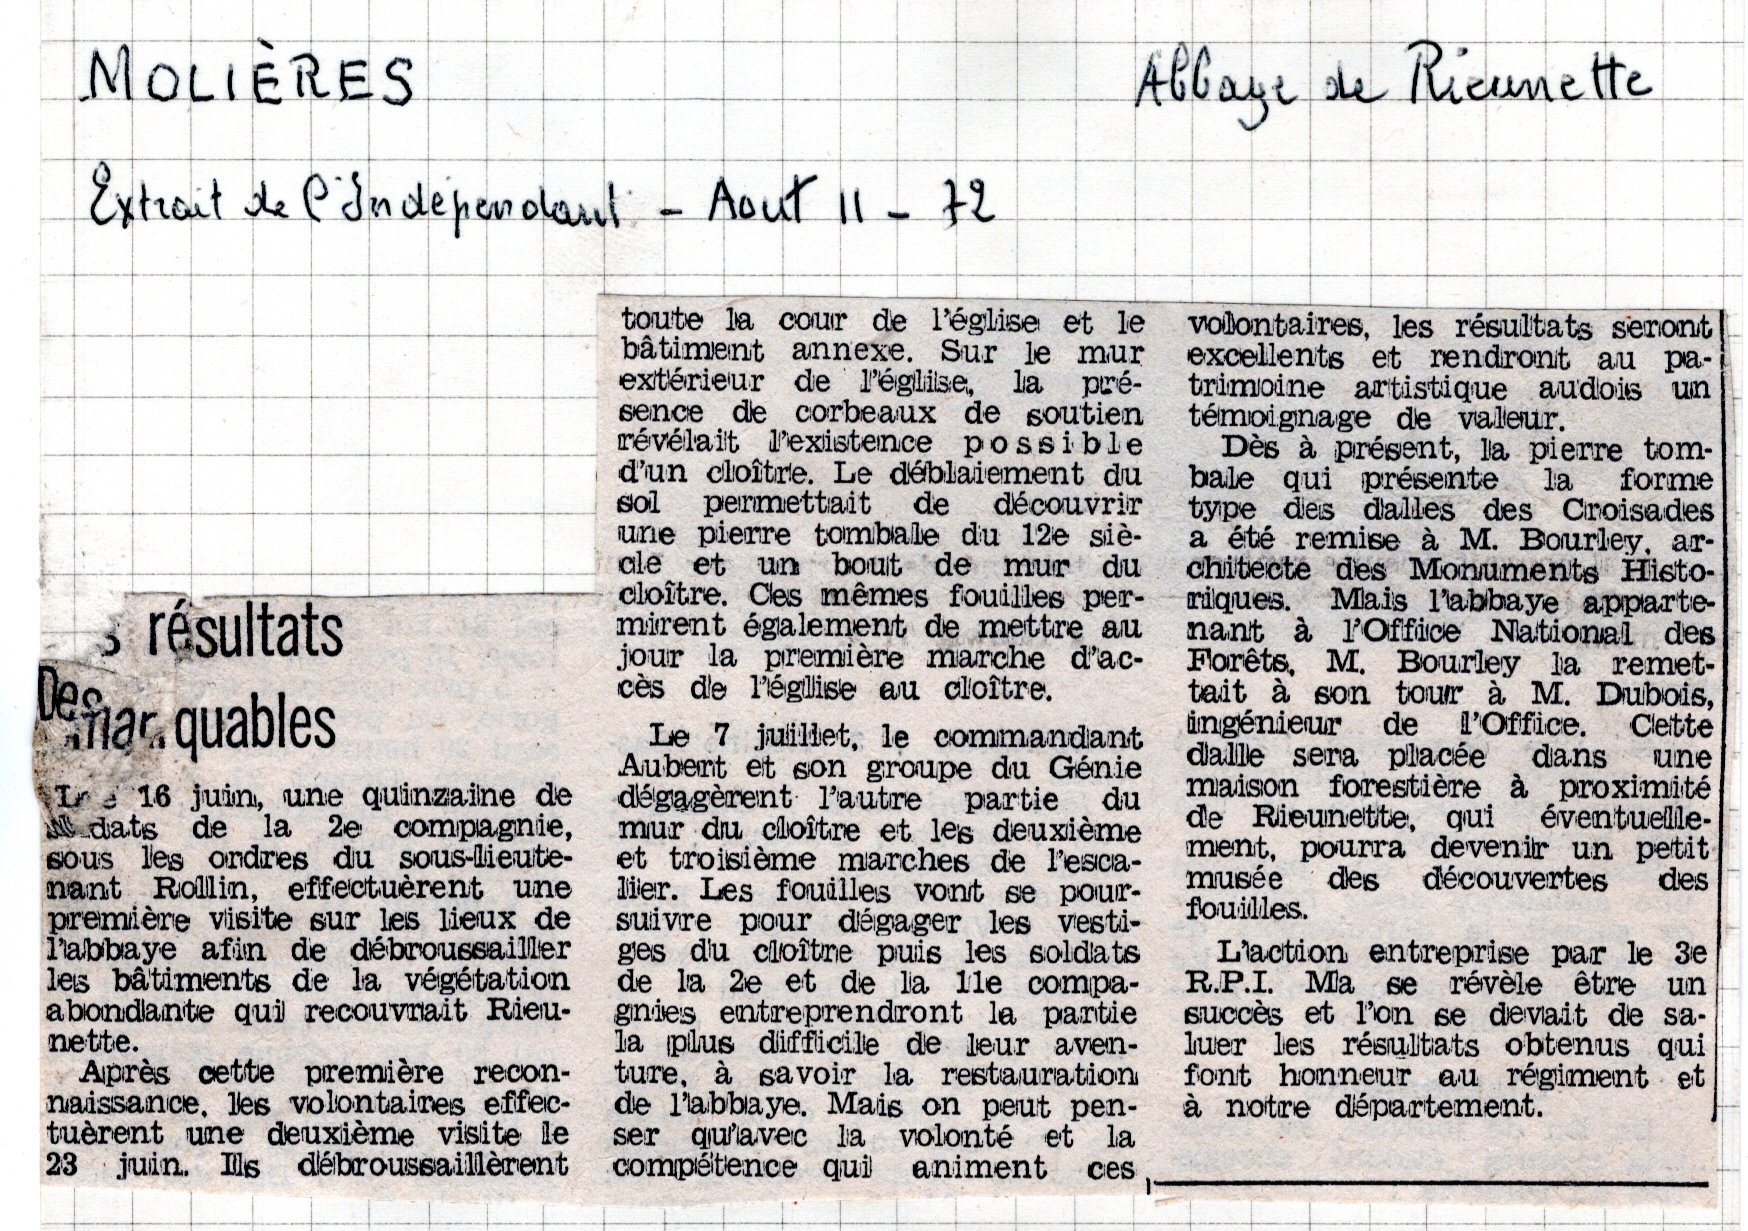 MOLIÈRES
Abbaye de Rieunette
Extrait de l'Indépendant - Aout 11 - 72
Des résultats
quables
Le 16 juin, une quinzaine de
dats de la 2e compagnie,
sous les ordres du sous-lieute-
nant Rollin, effectuèrent une
première visite sur les lieux de
l'abbaye afin de débroussailler
les bâtiments de la végétation
abondante qui recouvrait Rieu-
nette.
Après cette première recon-
naissance, les volontaires effec-
tuèrent une deuxième visite le
23 juin. Ils débroussaillèrent
toute la cour de l'église et le
bâtiment annexe. Sur le mur
extérieur de l'église, la pré-
sence de corbeaux de soutien
révélait l'existence possible
d'un cloître. Le déblaiement du
sol permettait de découvrir
une pierre tombale du 12e siè-
cle et un bout de mur du
cloître. Ces mêmes fouilles per-
mirent également de mettre au
jour la première marche d'ac-
cès de l'église au cloître.
Le 7 juillet, le commandant
Aubert et son groupe du Génie
dégagèrent l'autre partie du
mur du cloître et les deuxième
et troisième marches de l'esca-
lier. Les fouilles vont se pour-
suivre pour dégager les vesti-
ges du cloître puis les soldats
de la 2e et de la 11e compa-
gnies entreprendront la partie
la plus difficile de leur aven-
ture, à savoir la restauration
de l'abbaye. Mais on peut pen-
ser qu'avec la volonté et la
compétence qui animent ces
volontaires, les résultats seront
excellents et rendront au pa-
trimoine artistique audois un
témoignage de valeur.
Dès à présent, la pierre tom-
bale qui présente la forme
type des dalles des Croisades
a été remise à M. Bourley, ar-
chitecte des Monuments Histo-
riques. Mais l'abbaye apparte-
nant à l'Office National des
Forêts, M. Bourley la remet-
tait à son tour à M. Dubois,
ingénieur de l'Office. Cette
dalle sera placée dans une
maison forestière à proximité
de Rieunette, qui éventuelle-
ment, pourra devenir un petit
musée des découvertes des
fouilles.
L'action entreprise par le 3e
R.P.I. Ma se révèle être un
succès et l'on se devait de sa-
luer les résultats obtenus qui
font honneur au régiment et
à notre département.